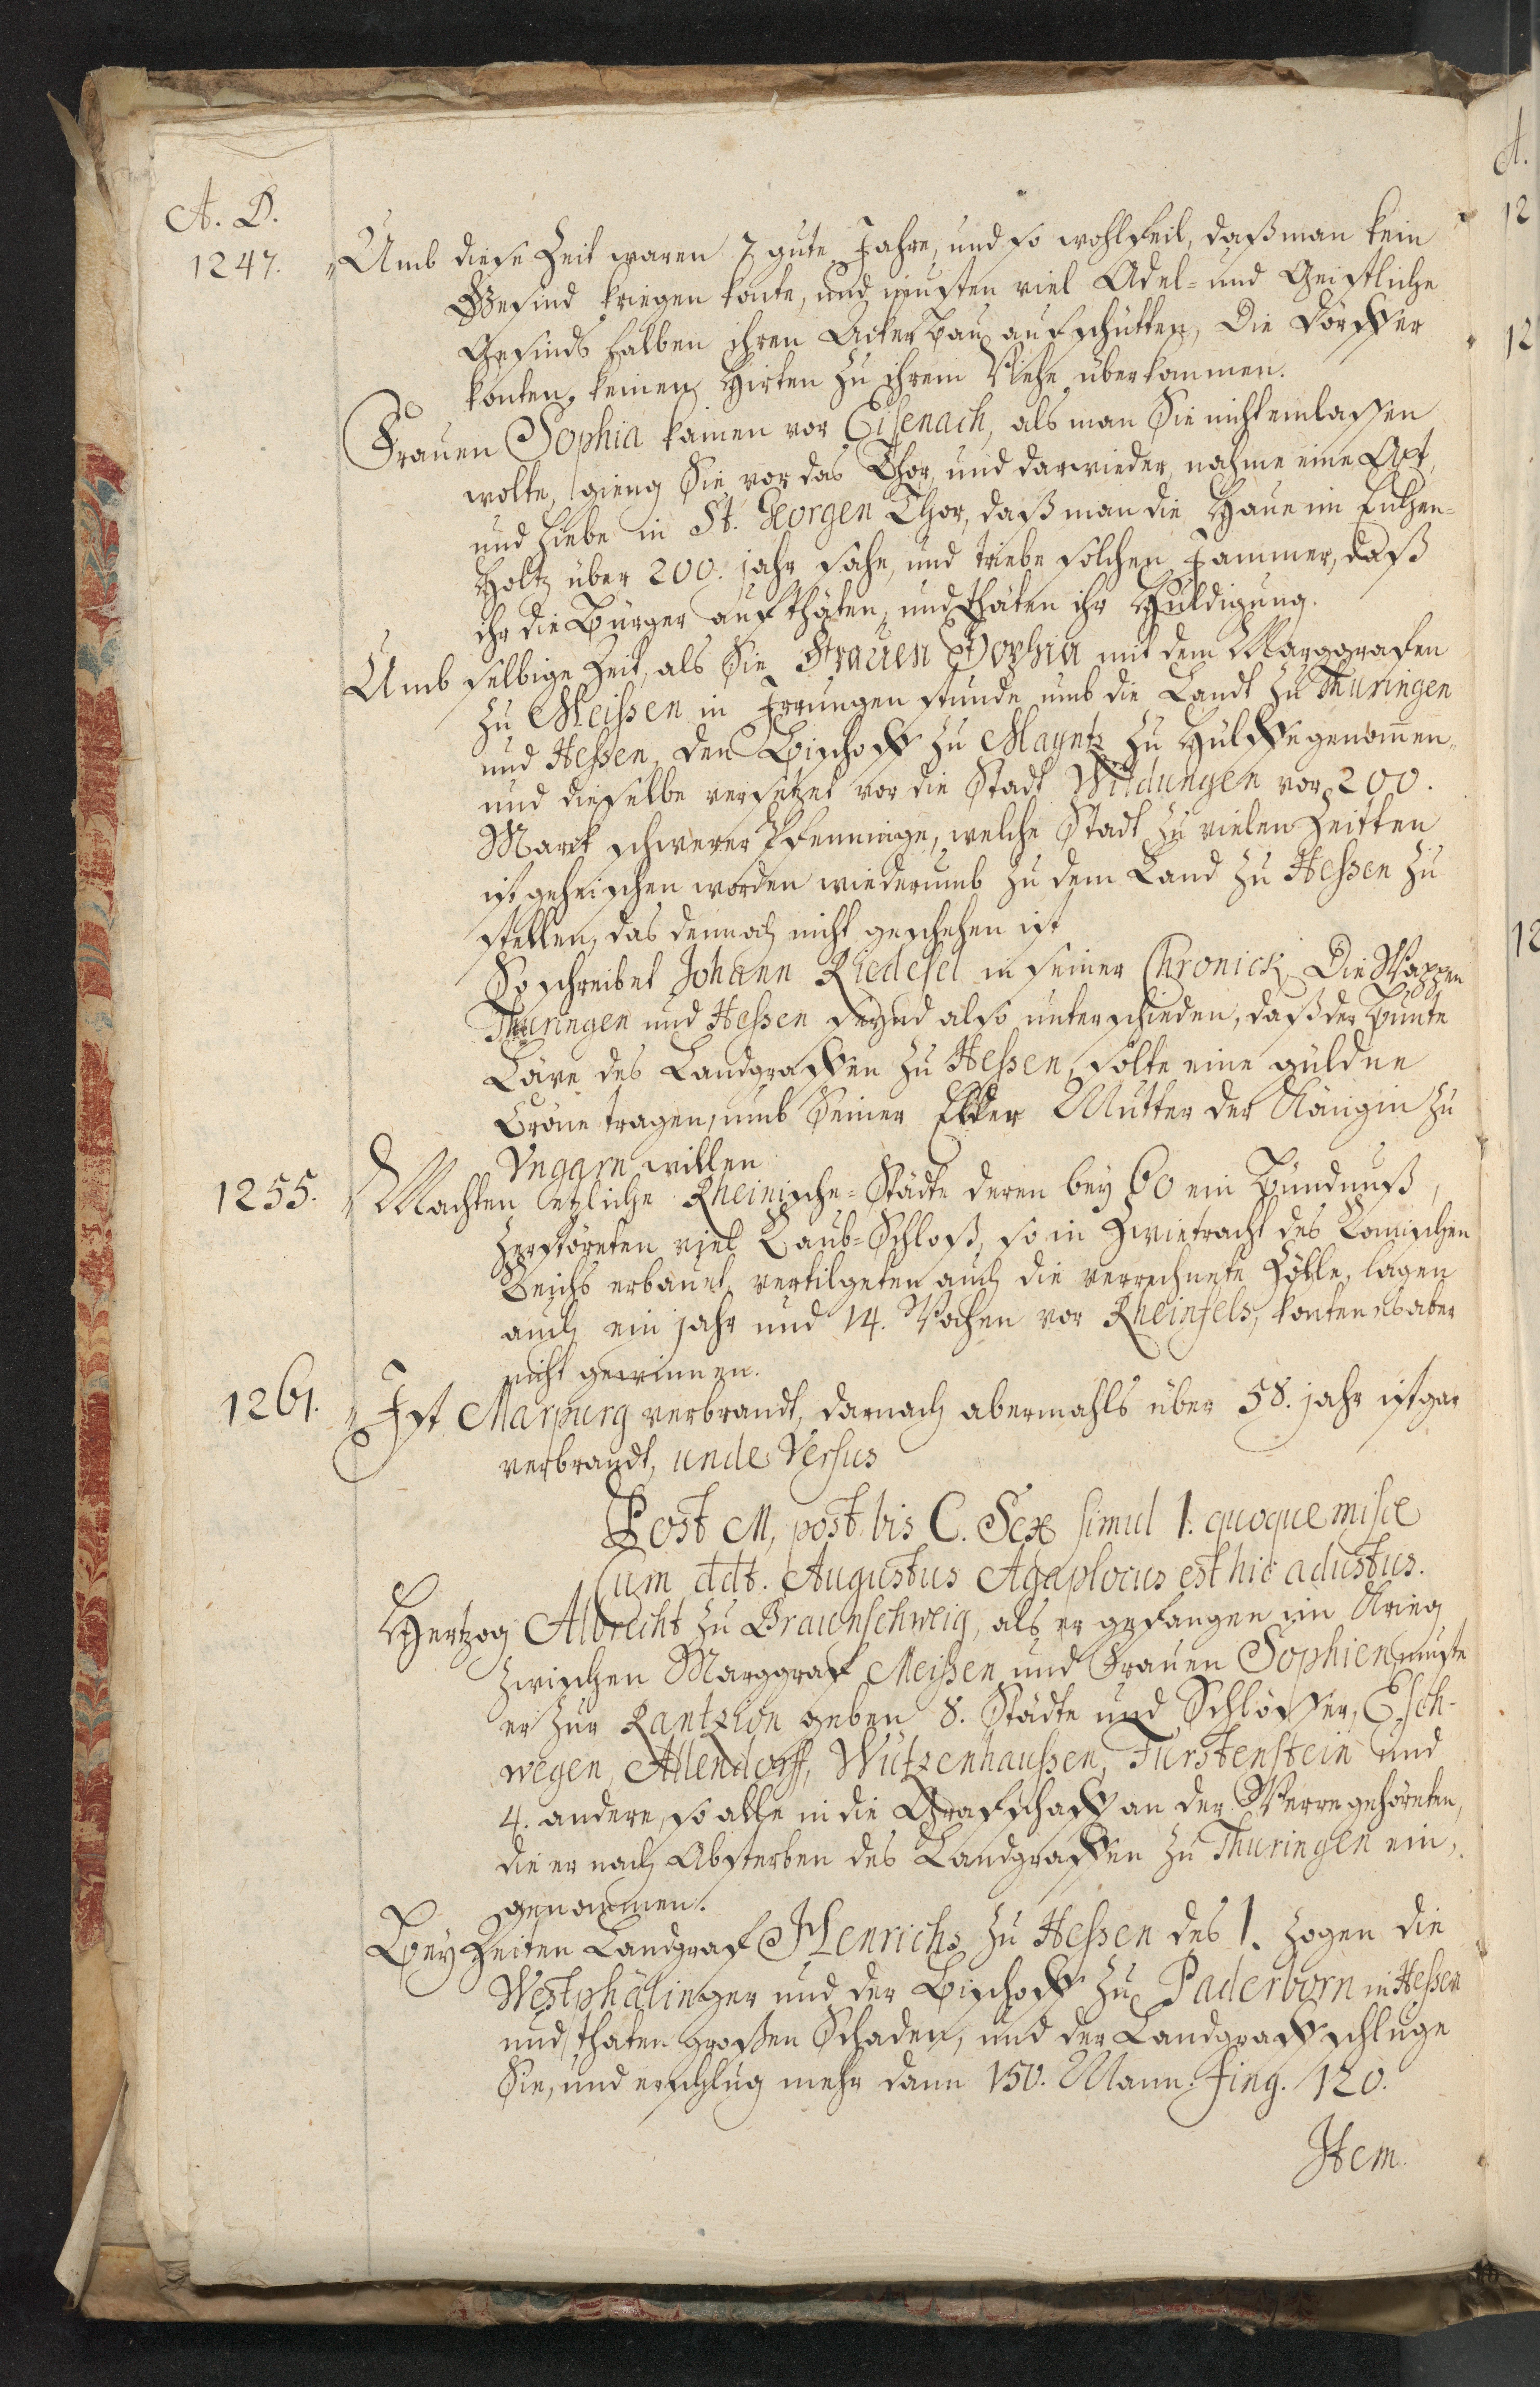 A. D.
1247. Umb diese Zeit waren 7 gute Jahre, und so wohlfeil, daß man kein
Gesind kriegen konte, und musten viel Adel- und Geistliche
Gesinds halben ihren Ackerbau aufschütten, Die Dörffer
konten keinen Hirten zu ihrem Viehe überkommen.
Frauen Sophia kamen vor Eisenach, als man Sie nicht einlassen
wolte, gieng Sie vor das Thor, und darwieder nahme eine Axt,
und hiebe in St. Georgen Thor, daß man die Haue im Eichen-
Holtz über 200. jahr sahe, und triebe solchen Jammer, daß
ihr die Bürger aufthäten, und thäten ihr Huldigung.
Umb selbige Zeit, als Sie Frauen Sophia mit dem Marggrafen
zu Meißen in Irrungen stunde umb die Landt zu Thüringen
und Heßen, den Bischoff zu Mayntz zu Hülffe genommen,
und dieselbe versetzet vor die Stadt Wildungen vor 200.
Marck schwerer Pfenninge, welche Stadt zu vielen Zeitten
ist geheischen worden wiederumb zu dem Land zu Heßen zu
stellen, das dennoch nicht geschehen ist
So schreibet Johann Riedesel in seiner Chronick, Die Wappen
Thüringen und Heßen seynd also unterschieden, daß der bunte
Läwe des Landgraffen zu Heßen, solte eine güldne
Crone tragen, umb Seiner Elder Mutter der Königin zu
Vngarn willen
1255. Machten etzliche Rheinische-Städte deren bey 60 ein Bündnuß,
zerstöreten viel Raub-Schloß, so in Zwietracht des Römischen
Reichs erbauet, vertilgeten auch die verrechnete Zölle, lagen
auch ein jahr und 14. Wochen vor Rheinfels, konten es aber
nicht gewinnen.
1261. Ist Marpurg verbrandt, darnach abermahls über 58. jahr ist gar
verbrandt, unde Versus
Post M, post bis C. Sex simul 1. quoque misce
Cum ddt. Augustus Agaplocus est hic adustus.
Hertzog Albrecht zu Braunschweig, als er gefangen im Krieg
zwischen Marggraf Meißen und Frauen Sophien, muste
er zur Rantzion geben 8. Städte und Schlösser, Esch-
wegen, Allendorff, Wützenhaußen, Fürstenstein und
4. andere, so alle in die Grafschafft an der Werre gehöreten,
die er nach Absterben des Landgraffen zu Thuringen ein-
genommen.
Bey Zeiten Landgraf Henrichs zu Heßen des 1. zogen die
Westphälinger und der Bischoff zu Paderborn in Heßen
und thaten großen Schaden, und der Landgraff schluge
Sie, und erschlug mehr dann 150. Mann. fing. 120.
Item.